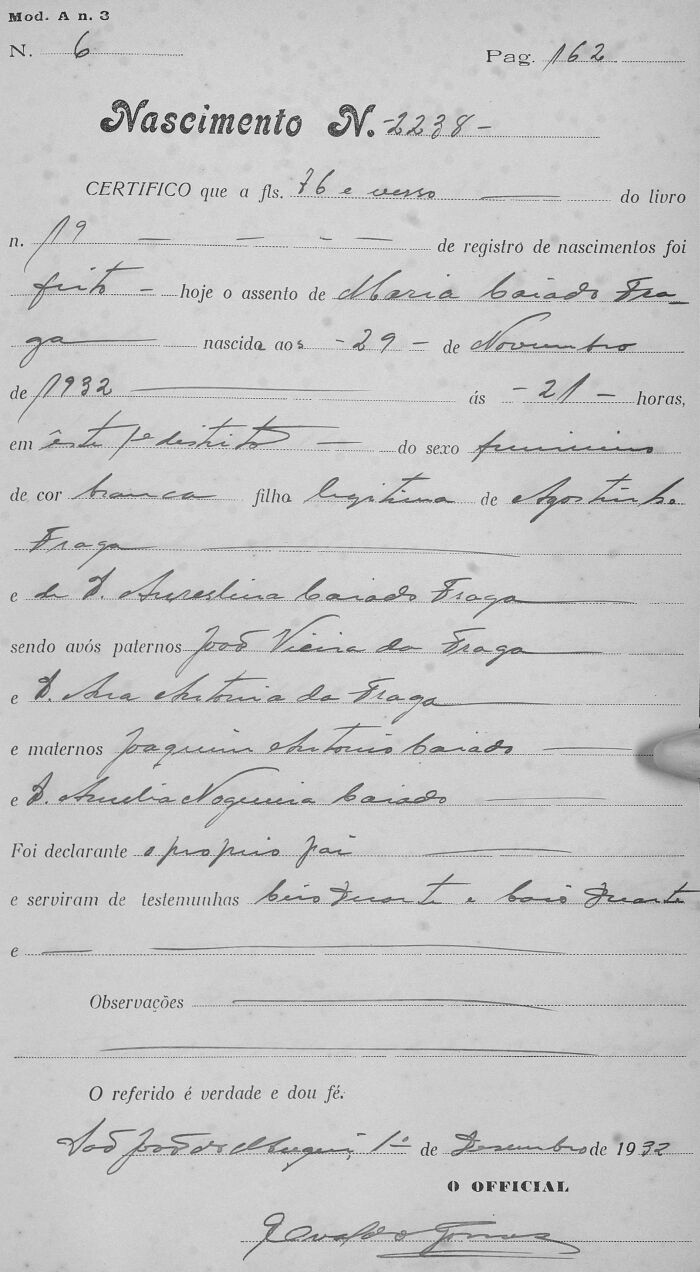 Mod. A n. 3
N. 6 Pag. 162
Nascimento N. -2238-
CERTIFICO que a fls. 76 e verso do livro
n. 19 de registro de nascimentos foi
feito - hoje o assento de Maria Caiado Fra-
ga nascida aos - 29 - de Novembro
de 1932 ás - 21 - horas,
em êste 1º distrito do sexo feminino
de cor branca filha legitima de Agostinho
Fraga
e de D. Aurestina Caiado Fraga
sendo avós paternos João Vieira da Fraga
e D. Ana Antonia da Fraga
e maternos Joaquim Antonio Caiado
e D. Amelia Nogueira Caiado
Foi declarante o proprio pai
e serviram de testemunhas Duarte e Duarte
e
Observações
O referido é verdade e dou fé.
São João do Muqui, 1º de Dezembro de 1932
O OFFICIAL